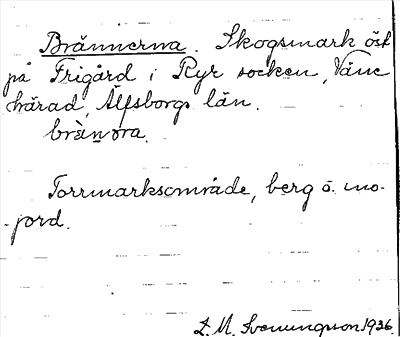 Brännerna. Skogsmark öst
på Frigård i Ryr socken, Väne
härad, Älfsborgs län.
Torrmarksområde, berg o. mo-
-jord.
Z. M. Svenungsson 1936.